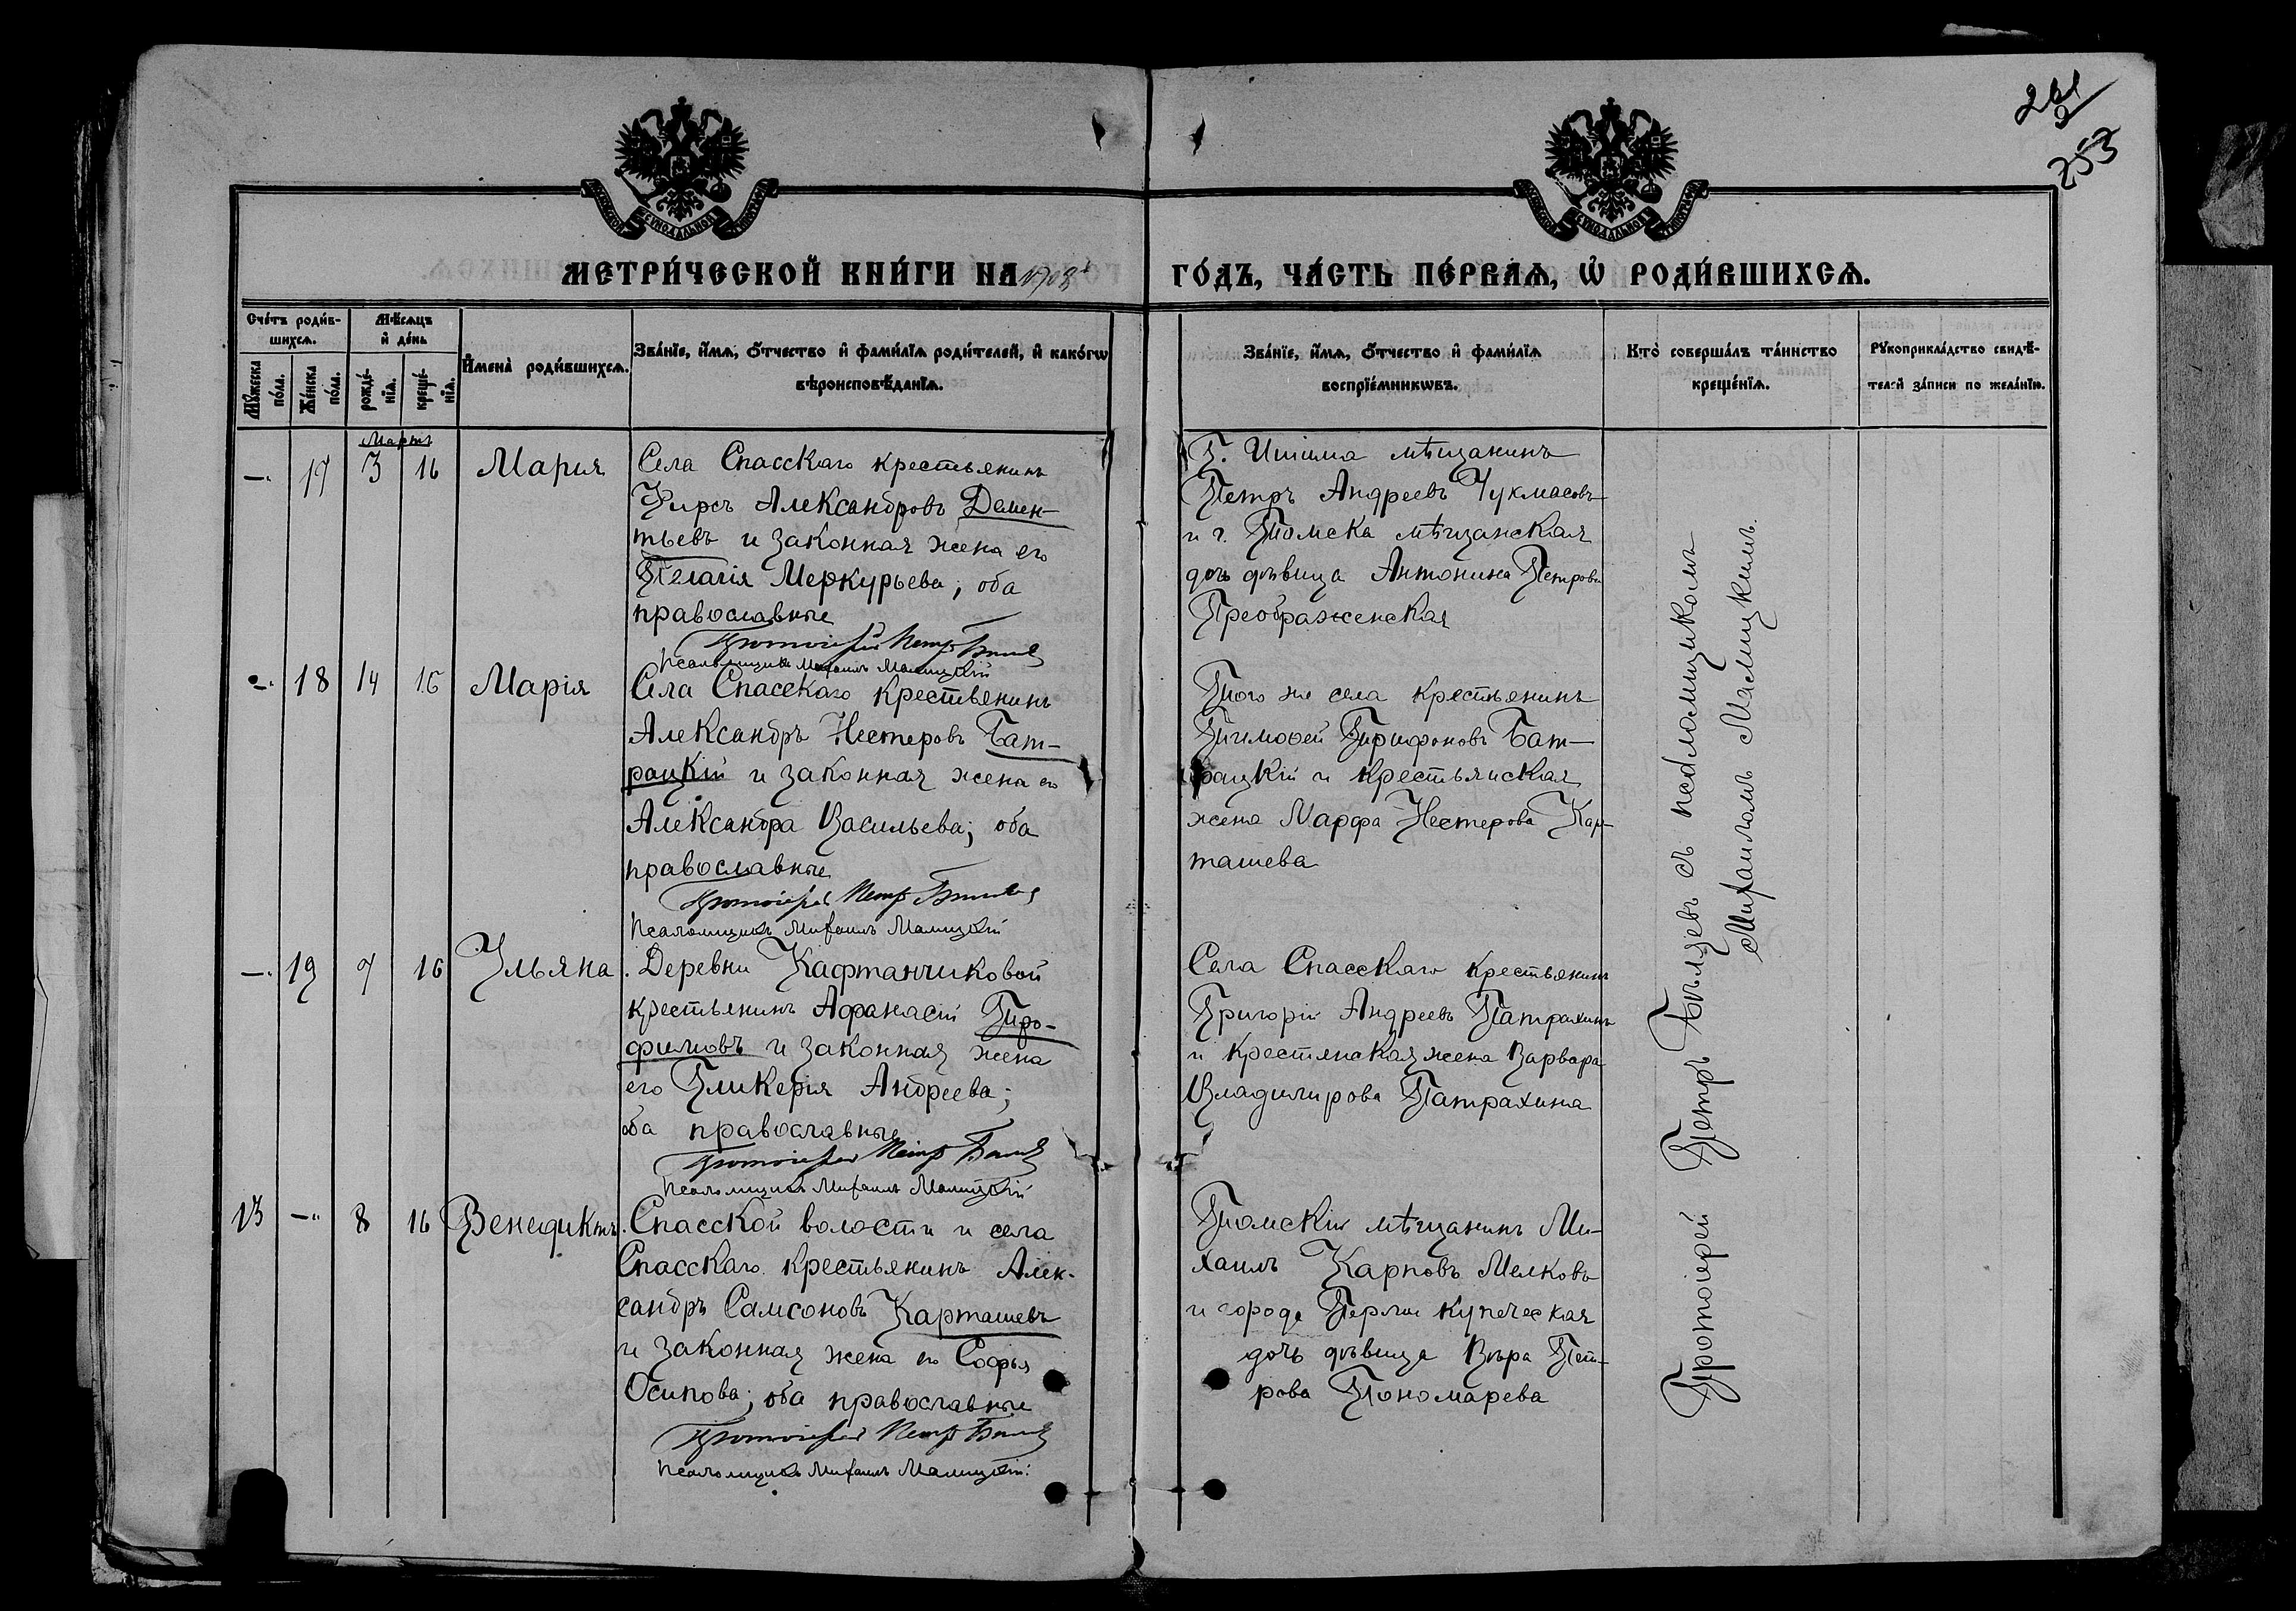 261
2
253
МЕТРИ́ЧЕСКОЙ КНИ́ГИ НА 1908 ГО́ДЪ, ЧА́СТЬ ПЕ́РВАѦ, Ѡ҆ РОДИ́ВШИХСѦ.
Сче́тъ роди́в-
шихсѧ.
Мѣ́сѧцъ
и҆ де́нь
Мꙋ́жеска
по́ла.
Же́нска
по́ла.
рожде́-
нїѧ.
креще́-
нїѧ.
И҆мена̀ роди́вшихсѧ.
Зва́нїе, и҆́мѧ, ѻ҆́тчество и҆ фами́лїѧ роди́телей, и҆ како́гѡ
вѣроисповѣ́данїѧ.
Зва́нїе, и҆́мѧ, ѻ҆́тчество и҆ фами́лїѧ
воспрїе́мникѡвъ.
Кто̀ соверша́лъ та́инство
креще́нїѧ.
Рꙋкоприкла́дство свидѣ́-
телей за́писи по жела́нїю.
Мартъ
— 17 3 16 Мария
Села Спасскаго крестьянинъ
Фирсъ Александровъ Демен-
тьевъ и законная жена его
Пелагія Меркурьева; оба
православные
Протоіерей Петръ
Псаломщикъ Михаилъ Малицкій
Г. Ишима мѣщанинъ
Петръ Андреевъ Чукмасовъ
и г. Томска мѣщанская
дочь дѣвица Антонина Петрова
Преображенская
— 18 14 16 Марія
Села Спасскаго крестьянинъ
Александръ Нестеровъ Бат-
рацкій и законная жена его
Александра Васильева; оба
православные
Протоіерей Петръ
Псаломщикъ Михаилъ Малицкій
Того же села крестьянинъ
Тимофей Трифоновъ Бат-
рацкій и крестьянская
жена Марфа Нестерова Кар-
ташева
— 19 7 16 Ульяна
Деревни Кафтанчиковой
крестьянинъ Афанасій Тро-
фимовъ и законная жена
его Гликерія Андреева;
оба православные
Протоіерей Петръ
Псаломщикъ Михаилъ Малицкій
Села Спасскаго крестьянинъ
Григорій Андреевъ Патрахинъ
и крестьянская жена Варвара
Владимирова Патрахина
13 — 8 16 Венедиктъ
Спасской волости и села
Спасскаго крестьянинъ Алек-
сандръ Самсоновъ Карташевъ
и законная жена его Софья
Осипова; оба православные
Протоіерей Петръ
Псаломщикъ Михаилъ Малицкій
Томскій мѣщанинъ Ми-
хаилъ Карповъ Мелковъ
и города Перми купеческая
дочь дѣвица Вѣра Пет-
рова Пономарева
Протоіерей Петръ съ псаломщикомъ
Михаиломъ Малицкимъ.